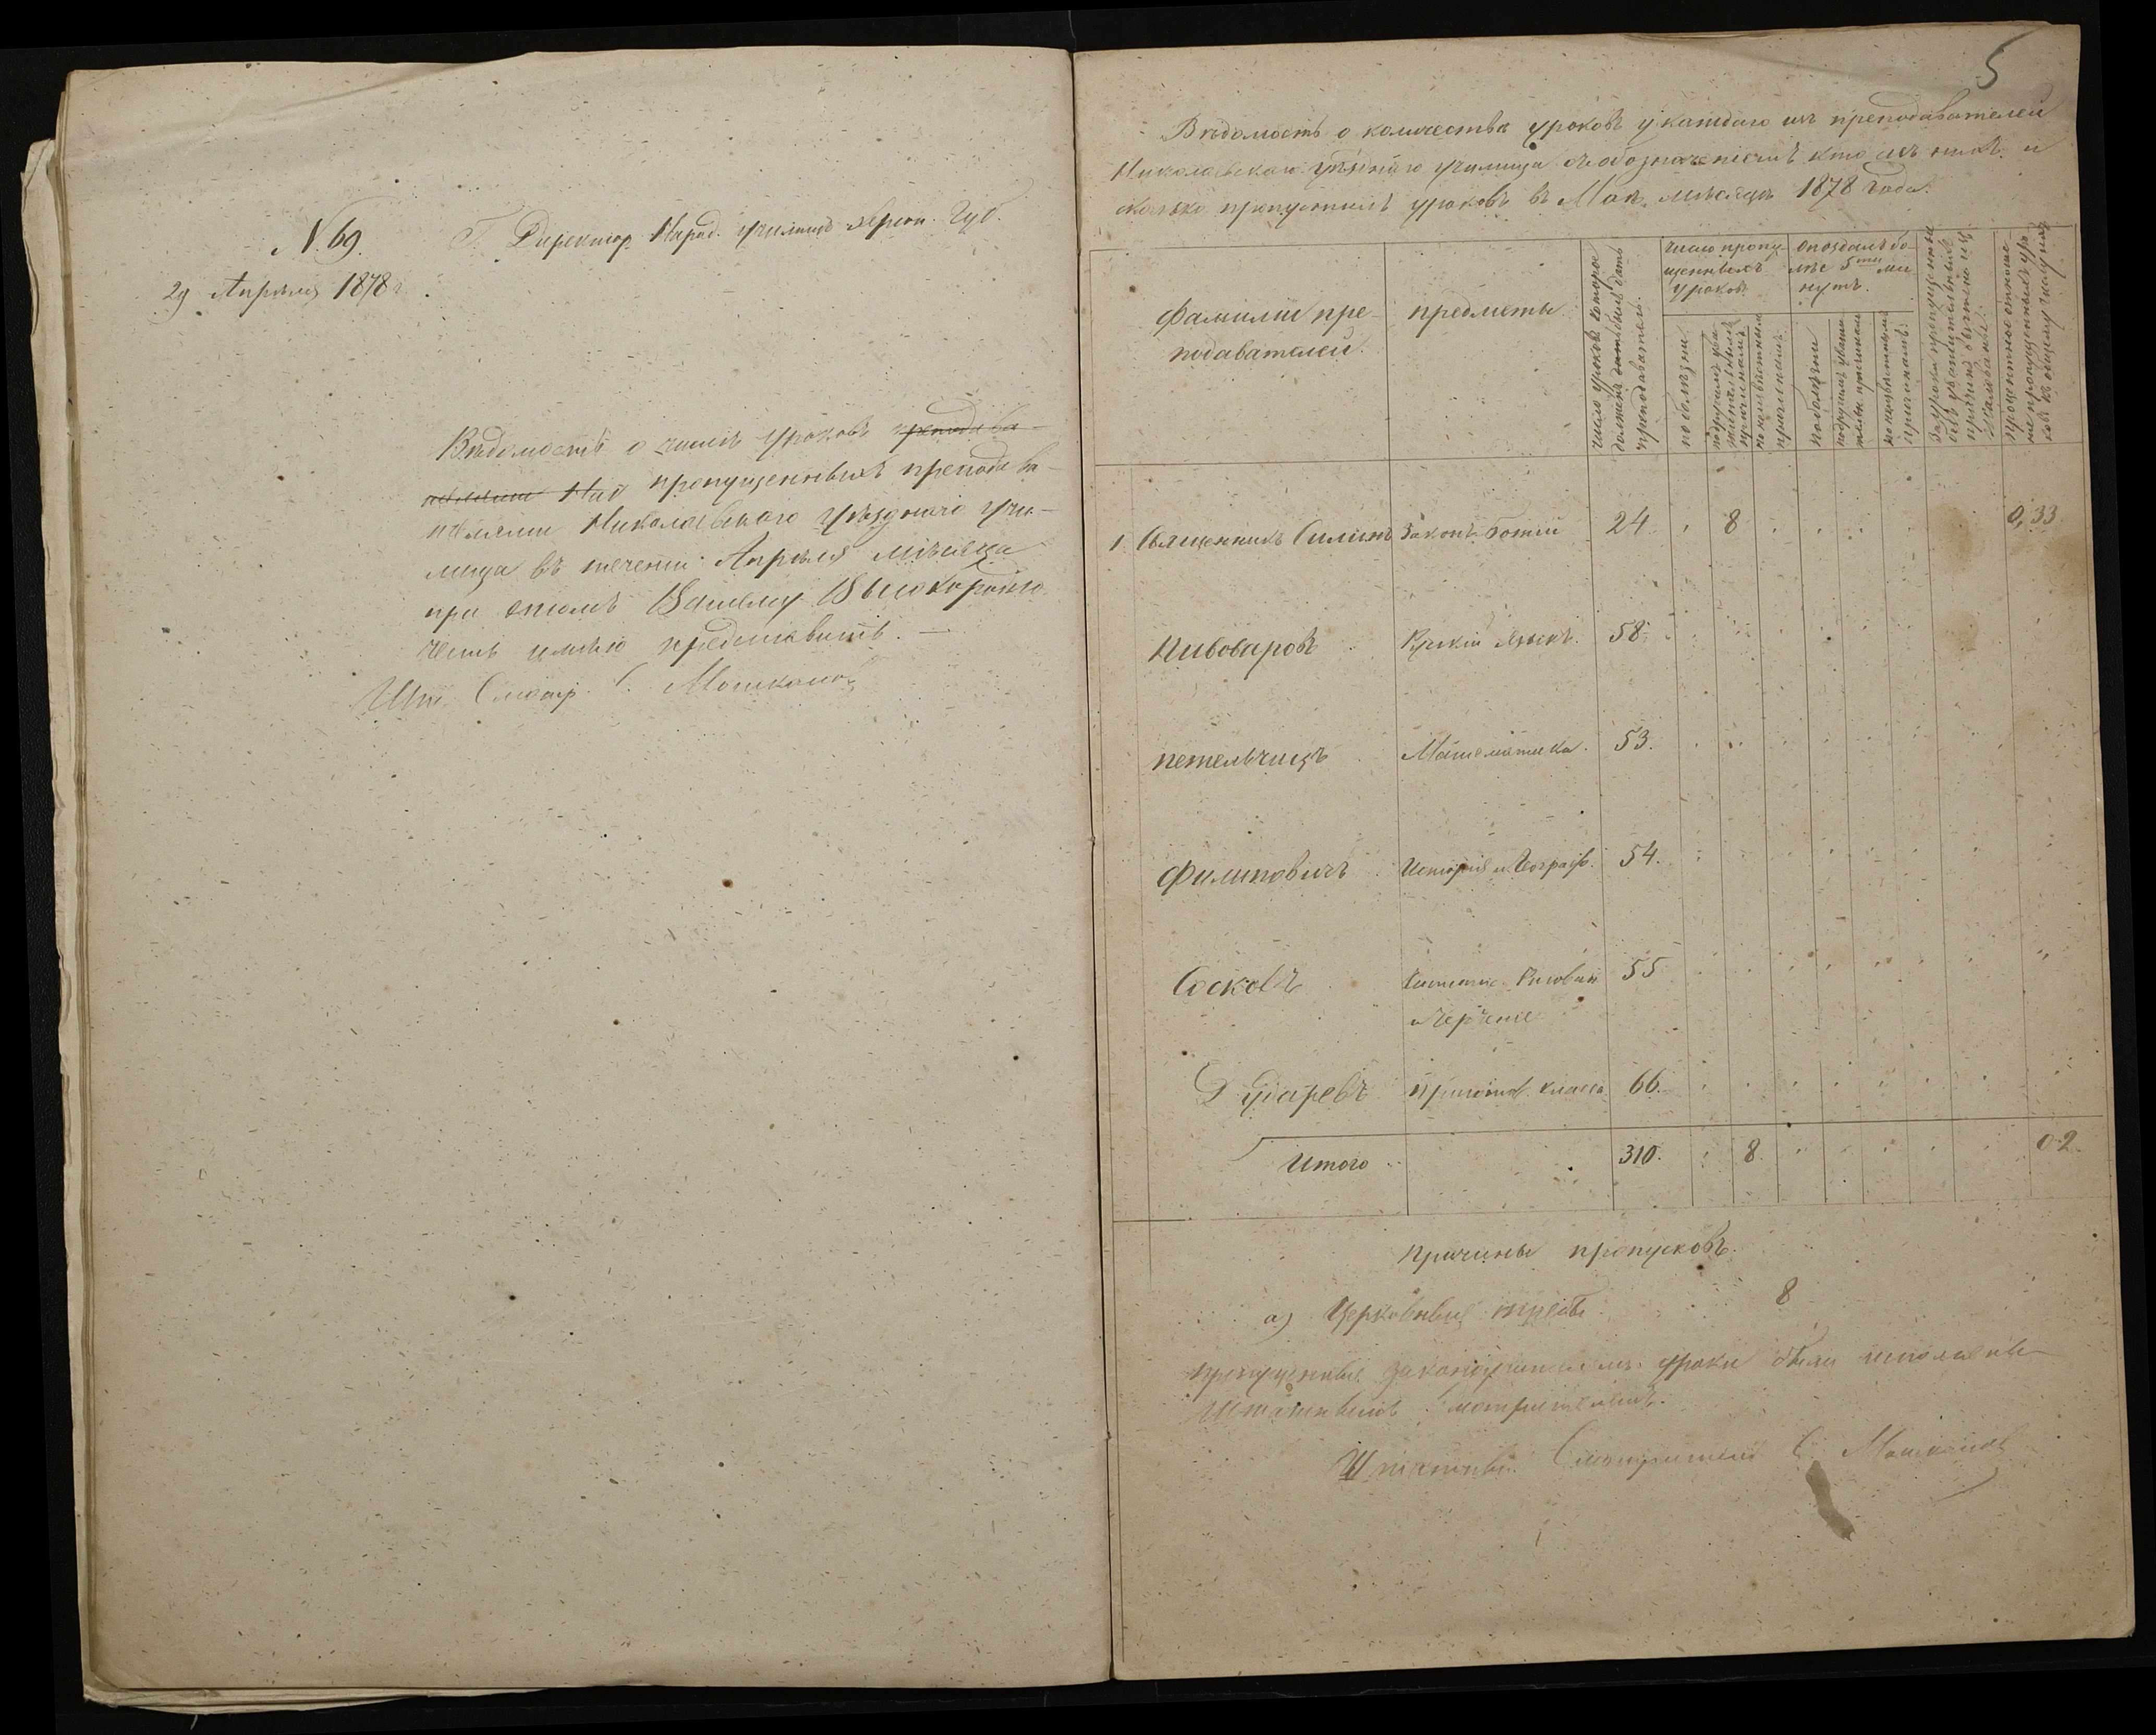 № 69.
29 Апрѣля 1878 г.
Г. Директор. Народ. училищъ Херсон. Губ.
Вѣдомость о числѣ уроковъ преподава-
телями Ник пропущенныхъ преподава-
телями Николаевскаго уѣзднаго учи-
лища въ теченіи Апрѣля мѣсяца
при семъ Вашему Высокородію
честь имѣю представить. —
Шт. Смотр. С.
5
Вѣдомость о количествѣ уроковъ у каждаго изъ преподавателей
Николаевскаго уѣзднаго училища съ обозначеніемъ кто изъ нихъ и
сколько пропустилъ уроковъ въ Маѣ мѣсяцѣ 1878 года.
Фамиліи пре-
подавателей.
предметы
число уроковъ которое
долженъ датъ
преподаватель.
число пропу-
щенныхъ
уроковъ.
опоздалъ бо-
лѣе 5ти ми-
нутъ.
по болѣзни
по другимъ ува-
жительнымъ
причинамъ
по неизвѣстнымъ
причинамъ
по болѣзни
по другимъ уважи-
тельн. причинам
по неизвѣстнымъ
причинамъ.
За уроки пропущенные
безъ уважительныхъ
причинъ вычтено изъ
жалованья.
процентное отноше-
ніе пропущенныхъ уро-
ковъ къ общему числу ихъ
1. Священникъ Законъ Божій 24. 8 0,33
Пивоваровъ Русскій языкъ. 58.
Петельчицъ Математика. 53.
Филиповичъ Исторія и Географ. 54.
Сосковъ Чистопис. Рисован 55
и Черченіе
Дударевъ Приготов. класса 66.
Итого 310. 8 0.2.
Причины пропусковъ.
а) Церковныя требы 8
Пропущенные законоучителемъ уроки были исполнены
Штатнымъ Смотрителемъ.
Штатный Смотритель С.